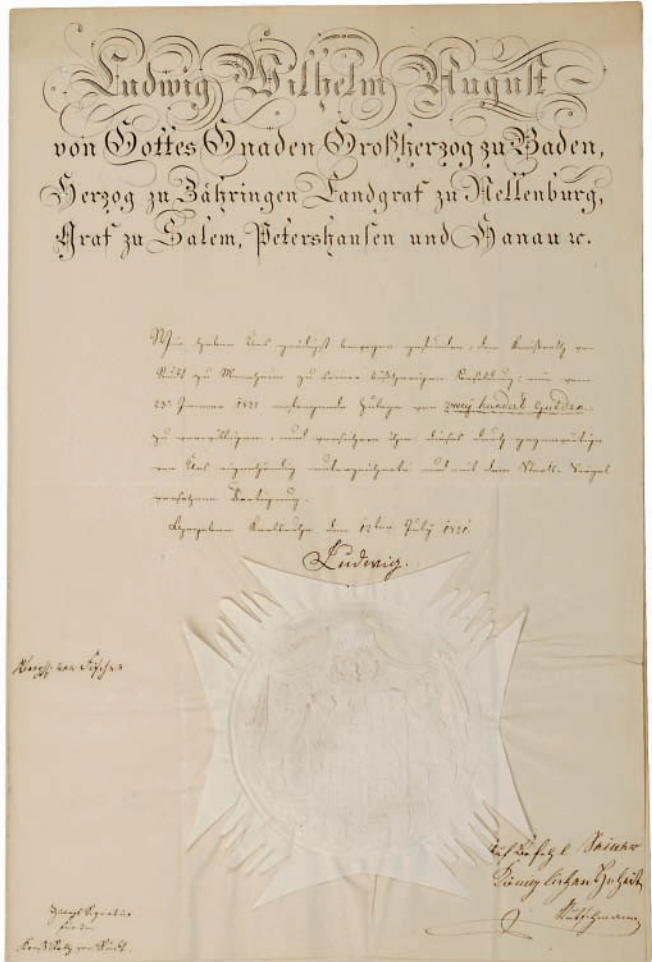 Ludwig Wilhelm August
von Gottes Gnaden Großherzog zu Baden,
Herzog zu Zähringen Landgraf zu Nellenburg,
Graf zu Salem, Petershausen und Hanau ꝛc.
Wir haben Uns gnädigst bewogen gefunden, dem Kreisrath von
zu Mannheim zu seiner bisherigen Besoldung, eine vom
23. Jenner 1821 anfangende Zulage von zweyhundert Gulden
zu verwilligen, und versichern ihm dieses durch gegenwärtige
von Uns eigenhändig unterzeichnete und mit dem Staats-Siegel
versehene Fertigung.
Gegeben Karlsruhe den 12ten July 1821.
Ludwig.
von Fischer
Auf Befehl Seiner
Königlichen Hoheit